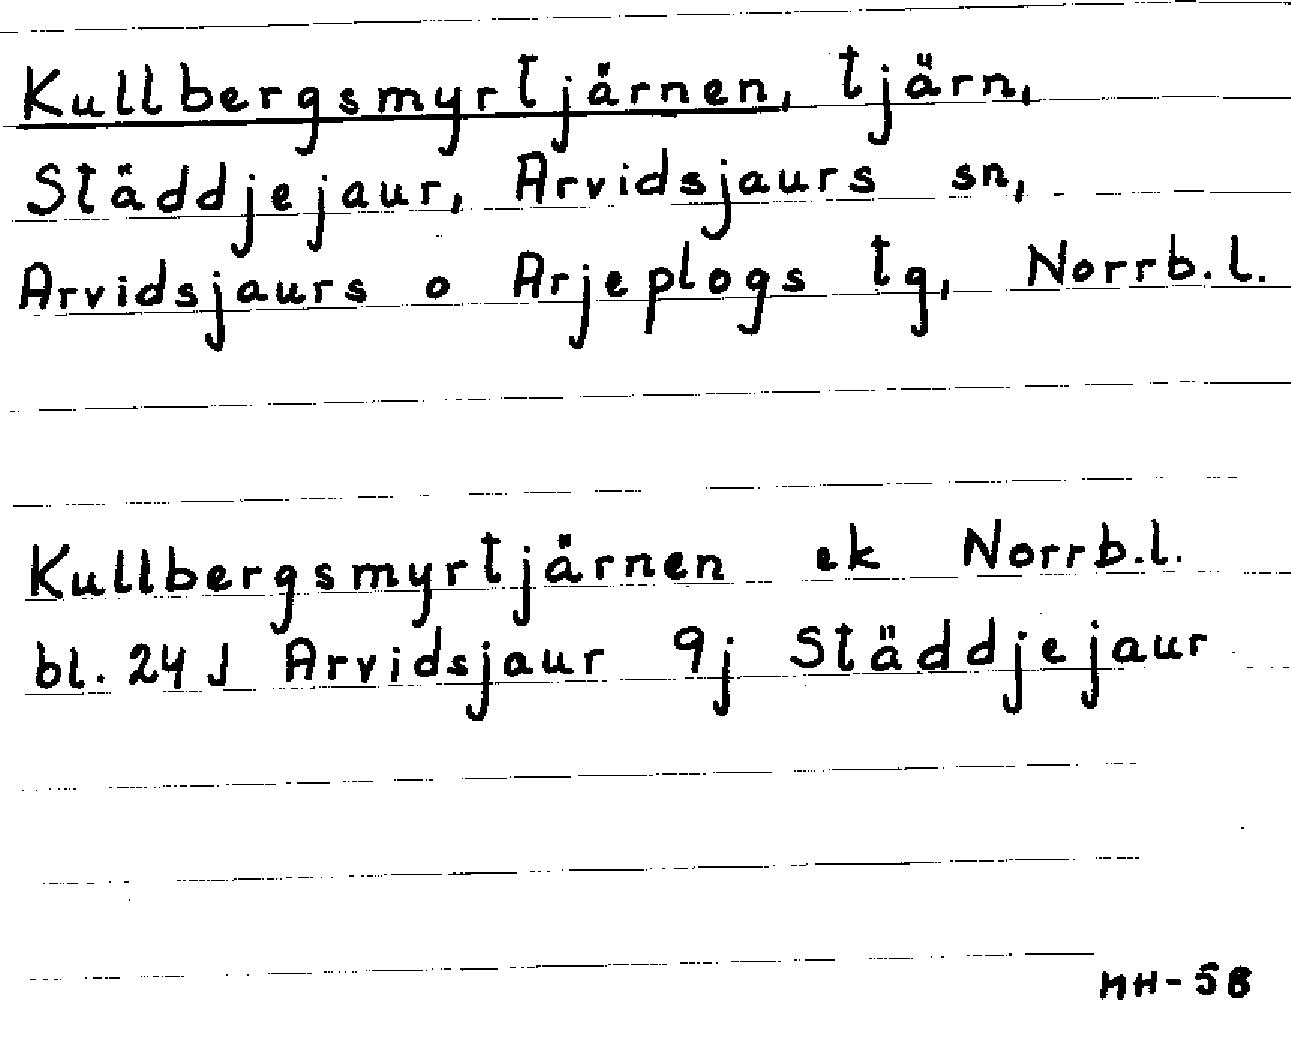 Kullbergsmyrtjärnen, tjärn,
Städdjejaur, Arvidsjaurs sn,
Arvidsjaurs o Arjeplogs tg, Norrb.l.
Kullbergsmyrtjärnen ek Norrb.l.
bl. 24 J Arvidsjaur 9j Städdjejaur